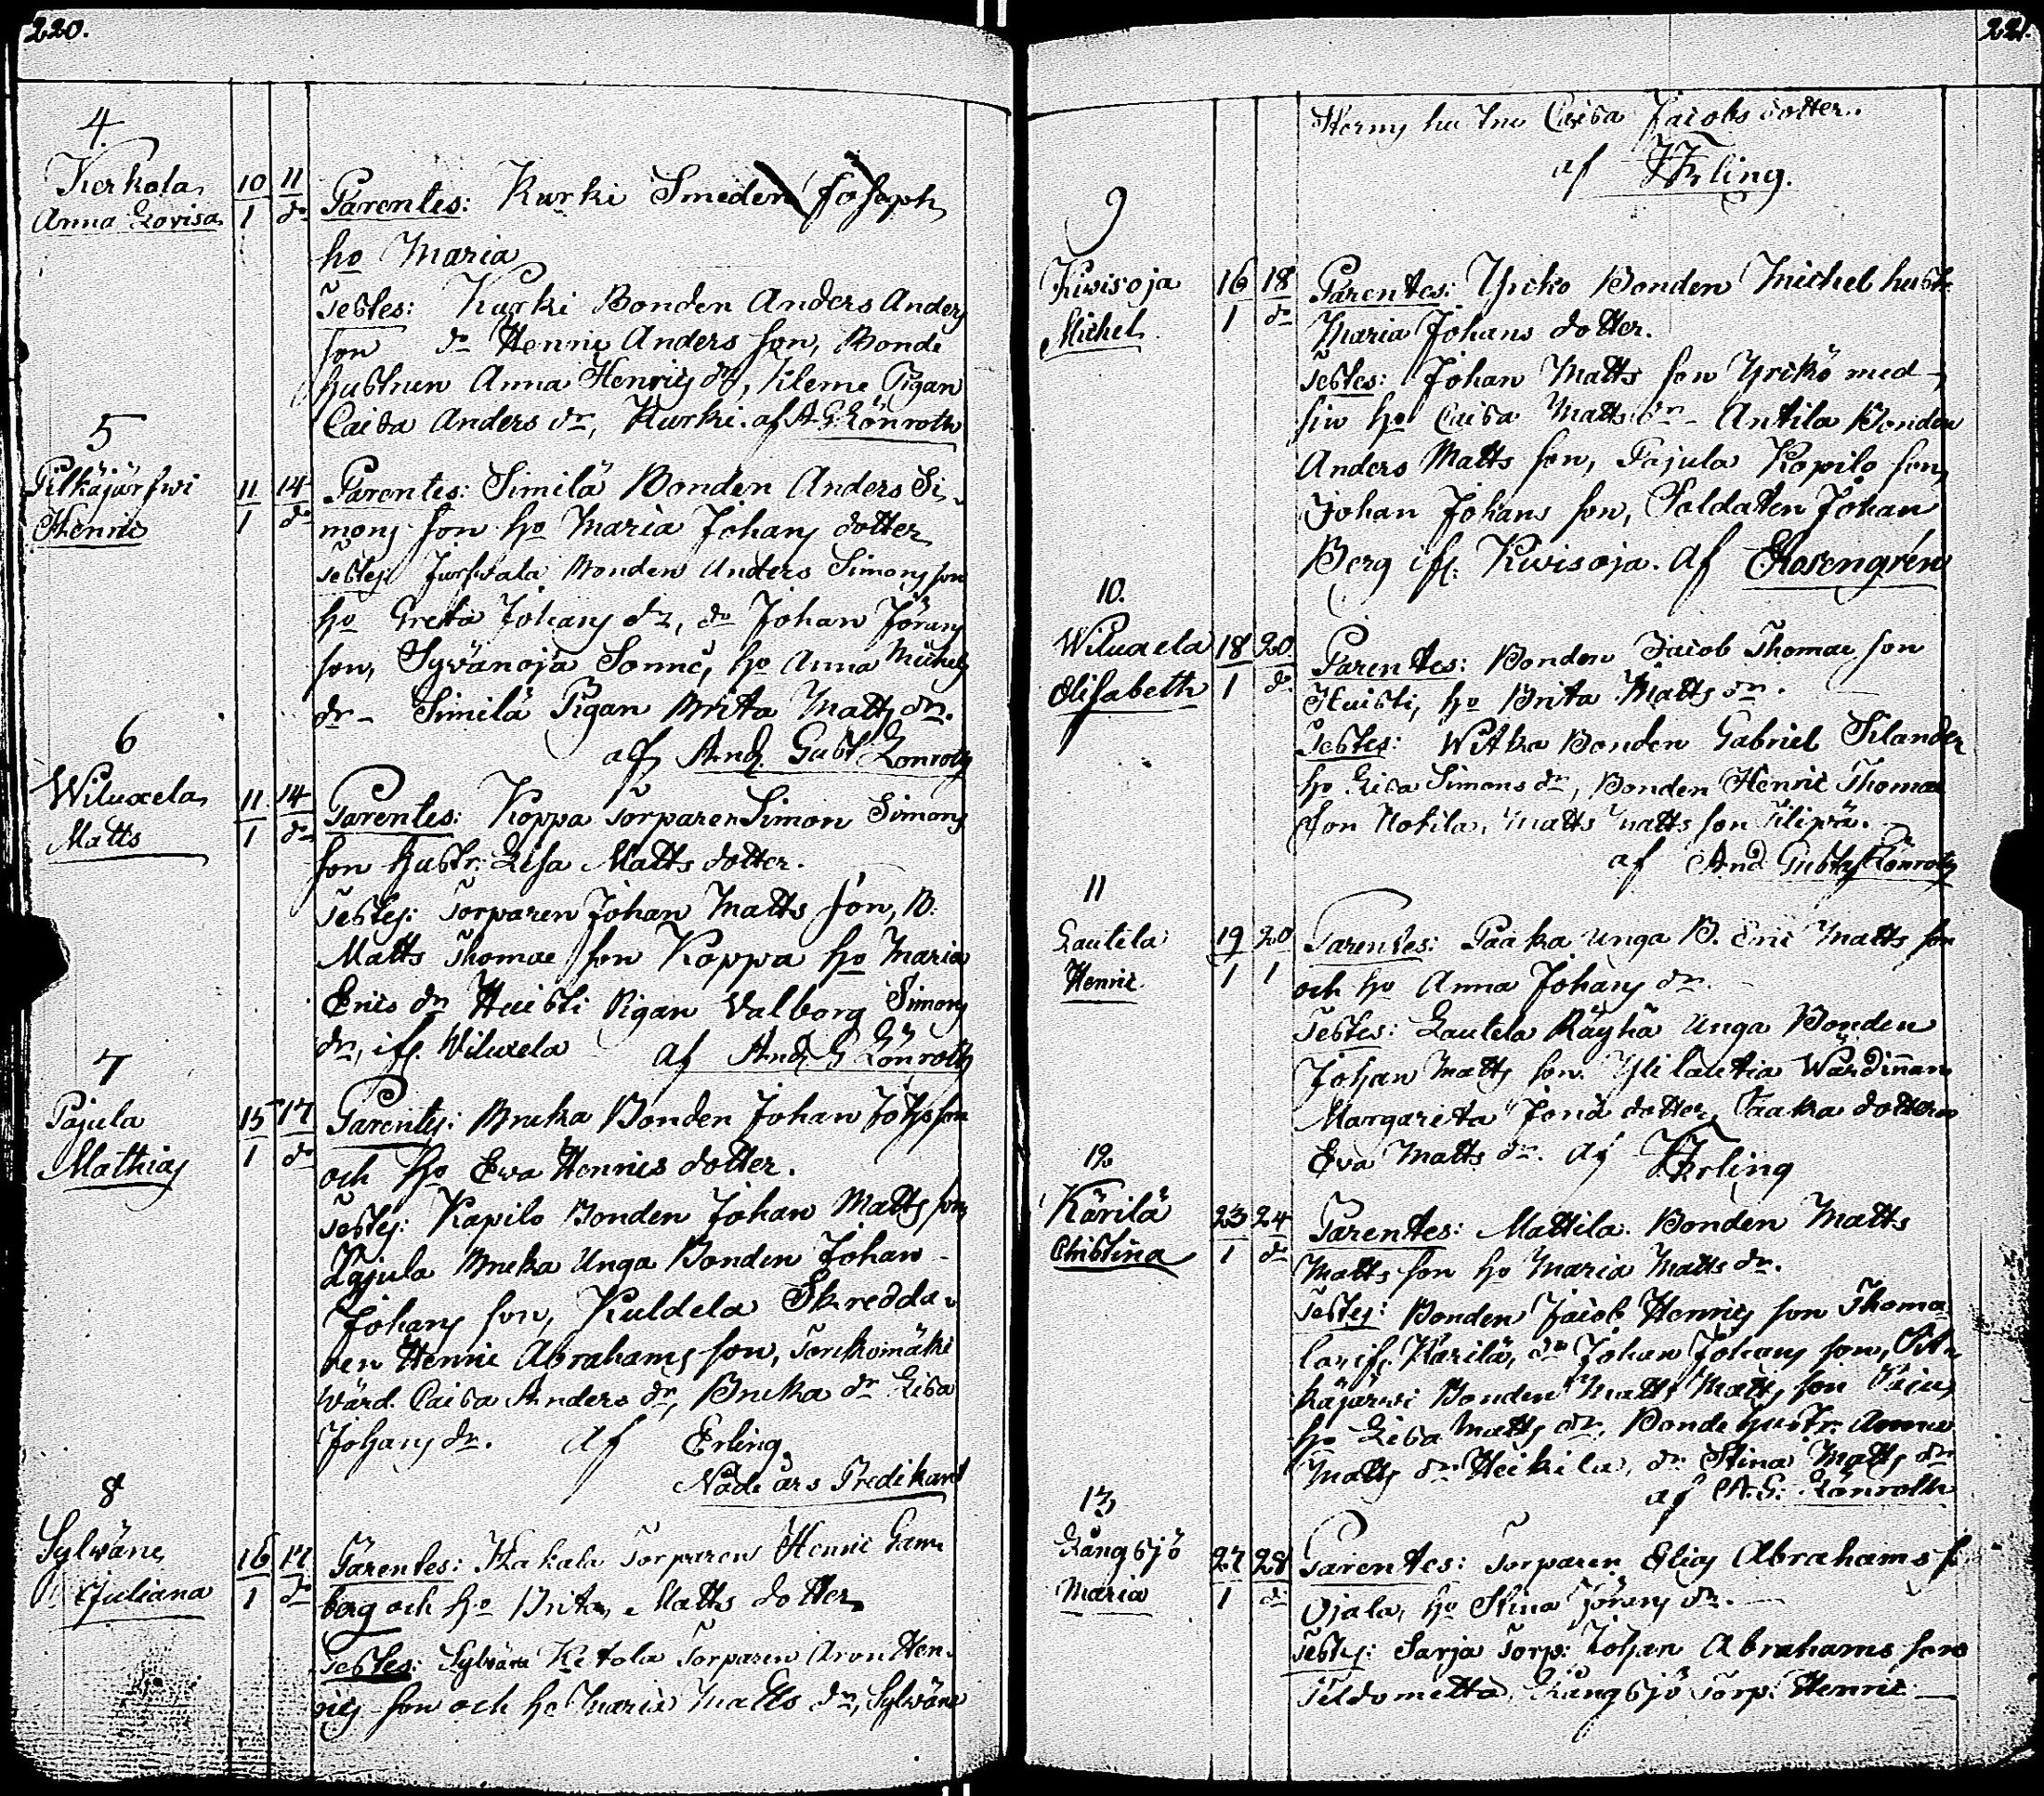 220.
4.
Kerkola 10 11 Parentes: Kurki Smeden Joseph
Anna Lovisa 1 do
ho Maria
Testes: Kurki Bonden Anders Anders
son do Henric Anders son, Bonde
hustrun Anna Henrics dr, Kleme Pigan
Caisa Anders dr, Kurki. af A G Lönroth
5
Pitkäjärfwi 11 14 Parentes: Similä Bonden Anders Si-
Henric 1 do mons son ho Maria Johans dotter
Testes: Bonden Anders Simons son
ho Greta Johans dr, do Johan Jörans
son, Sywänoja Sonnë, ho Anna Michels
dr - Similä Pigan Brita Matts dr.
af And. Gust Lönroth
6
Wiluxela 11 14 Parentes: Koppa Torparen Simon Simons
Matts 1 do son hustr. Lisa Matts dotter.
Testes: Torparen Johan Matts son, B.
Matts Thomae son Koppa ho Maria
Erics dr Huisti Pigan Valborg Simons
dr, ifr. Wiluxela af And G Lönroth
7
Pajula 15 17 Parentes: Bruka Bonden Johan Johs son
Mathias 1 do och ho Ewa Henrics dotter.
Testes: Kapilo Bonden Johan Matts son
Pajula Bruka Unga Bonden Johan
Johans son, Kuldela Skredda-
ren Henric Abrahams son, Torikomäki
Wärd. Caisa Anders dr, Bruka dr Lisa
Johans dr. af Erling
Nådeårs Predikant
8
Sylwäne 16 17 Parentes: Torparen Henric Gam
Juliana 1 do berg och ho Brita Matts dotter
Testes: Sylwäne Ketola Torparen Aron Hen-
rics son och ho Maria Matts dr, Sylwäne
221.
Caisa Jacobs dotter.
af Erling.
9
Kiwisoja 16 18 Parentes: Yrckö Bonden Michel hustr
Michel 1 do Maria Johans dotter.
Testes: Johan Matts son Yrickö med
sin ho Caisa Matts dr - Antila Bonden
Anders Matts son, Pajula Kopilo son,
Johan Johans son, Soldaten Johan
Berg ifr. Kiwisoja. af Rosengrén
10.
Wiluxela 18 20 Parentes: Bonden Jacob Thomae son
Elisabeth 1 do. Huisti, ho Brita Matts dr.
Testes: Witka Bonden Gabriel Silander
ho Lisa Simons dr, Bonden Henric Thomae
son Nokila, Matts Matts son Filipä.
af And Gustaf Lönroth
11
Lautela 19 20 Parentes: Paaka unga B. Eric Matts son
Henric 1 1 och ho Anna Johans dr.
Testes: Lautela Räyhä Unga Bonden
Johan Matts son. Yli lautia Wärdinnan
Margareta Jonä dotter, Paaka dottern
Eva Matts dr. af Erling
12
Kärilä 23 24 Parentes: Mattila Bonden Matts
Christina 1 do Matts son ho Maria Matts dr.
Testes: Bonden Jacob Henrics son Thoma
la ifr. Karilä, do Johan Johans son, Pit
käjärwi Bonden Matts Matts son
ho Lisa Matts dr, Bonde hustr. Anna
Matts dr Heikila, do Stina Matts dr
af A. G. Lönroth
13
Långsjö 27 28 Parentes: Torparen Elias Abrahams s.
Maria 1 do Ojala, ho Stina Jörans dr.
Testes: Sarja Torp: Johan Abrahams son
Långsjö Torp. Henric